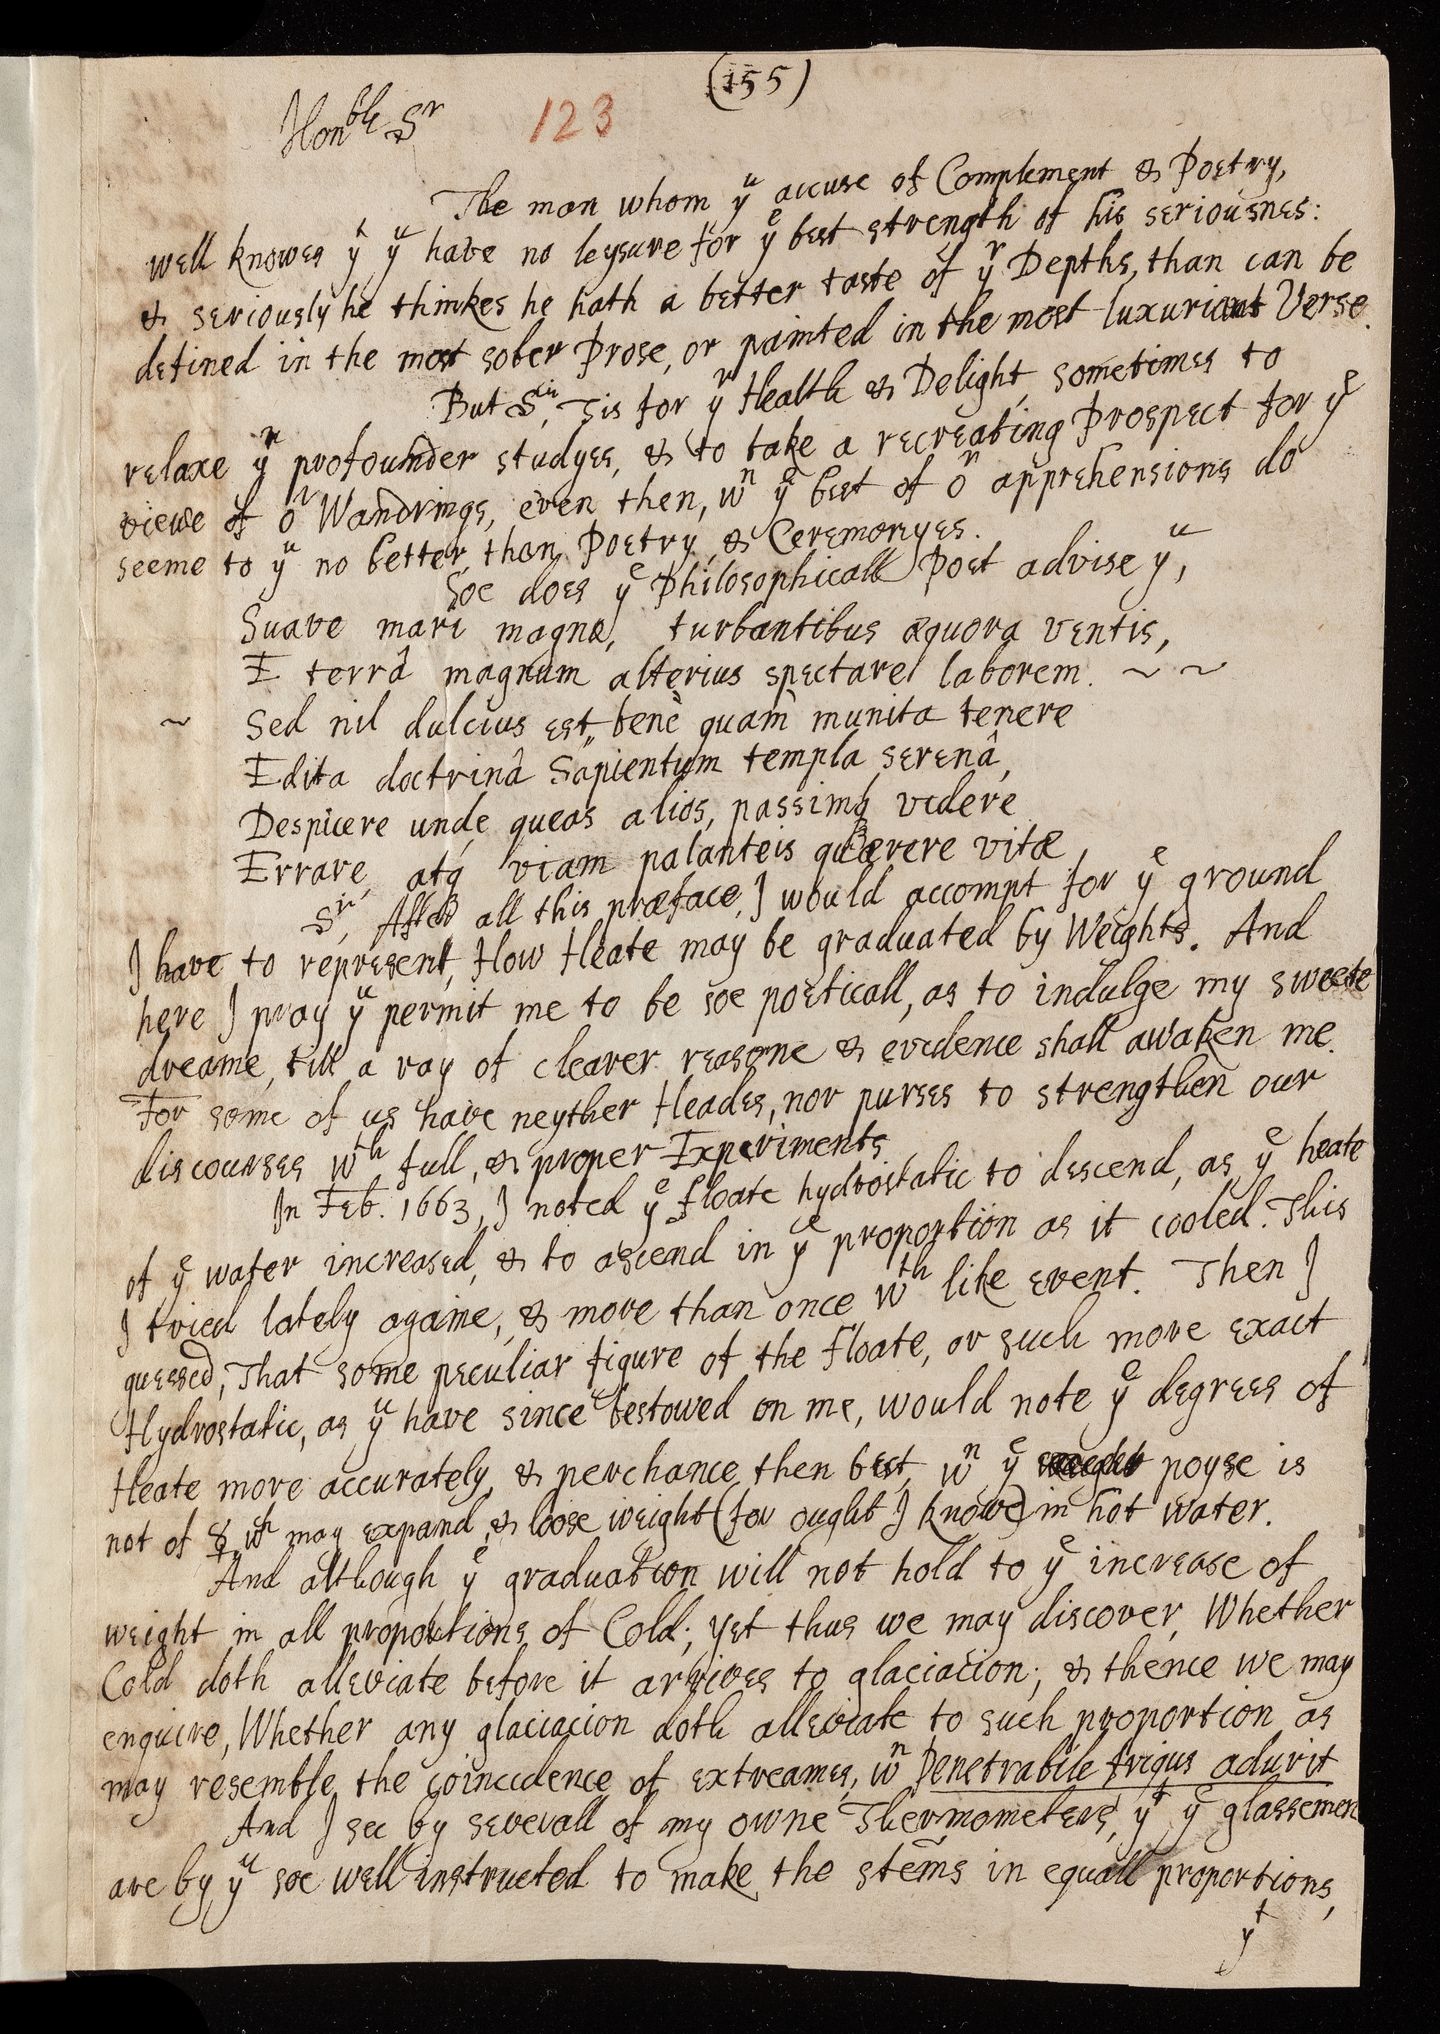 (155)
Honble Sr
123
The man whom yu accuse of Complement & Poetry,
well knowes yt yu have no leysure for ye best strength of his seriousnes:
& seriously he thinkes he hath a better taste of yr Depths, than can be
defined in the most sober Prose, or painted in the most luxuriant Verse.
But Sir, Tis for yr Health & Delight, sometimes to
relaxe yr profounder studyes, & to take a recreating Prospect for ye
viewe of or Wandrings, even then, wn ye best of or apprehensions do
seeme to yu no better, than Poetry, & Ceremonyes.
Soe does ye Philosophicall Poet advise yu,
Suave mari magno, turbantibus æquora ventis,
E terrâ magnum alterius spectare laborem. ~ ~
~ Sed nil dulcius est, benè quam munita tenere
Edita doctrinâ Sapientum templa serenâ,
Despicere unde queas alios, passimq videre
Errare, atq viam palanteis quærere vitæ,
Sir, After all this præface, I would accompt for ye ground
I have to represent, How Heate may be graduated by Weights. And
here I pray yu permit me to be soe poeticall, as to indulge my sweete
dreame, till a ray of clearer reasone & evidence shall awaken me.
For some of us have neyther Heades, nor purses to strengthen our
discourses wth full, & proper Experiments.
In Feb. 1663, I noted ye floate hydrostatic to descend, as ye heate
of ye water increased, & to ascend in ye proportion as it cooled. This
I tried lately againe, & more than once wth like event. Then I
guessed, That some peculiar figure of the Floate, or such more exact
Hydrostatic, as yu have since bestowed on me, would note ye degrees of
Heate more accurately, & perchance then best, wn ye poyse is
not of ☿ wch may expand, & loose weight (for ought I knowe) in hot water.
And although ye graduation will not hold to ye increase of
weight in all proportions of Cold; yet thus we may discover, Whether
Cold doth alleviate before it arrives to glaciacion; & thence we may
enquire, Whether any glaciacion doth alleviate to such proportion as
may resemble the coincidence of extreames, wn Penetrabile frigus adurit
And I see by severall of my owne Thermometers, yt ye glassemen
are by yu soe well instructed to make the stems in equall proportions,
yt